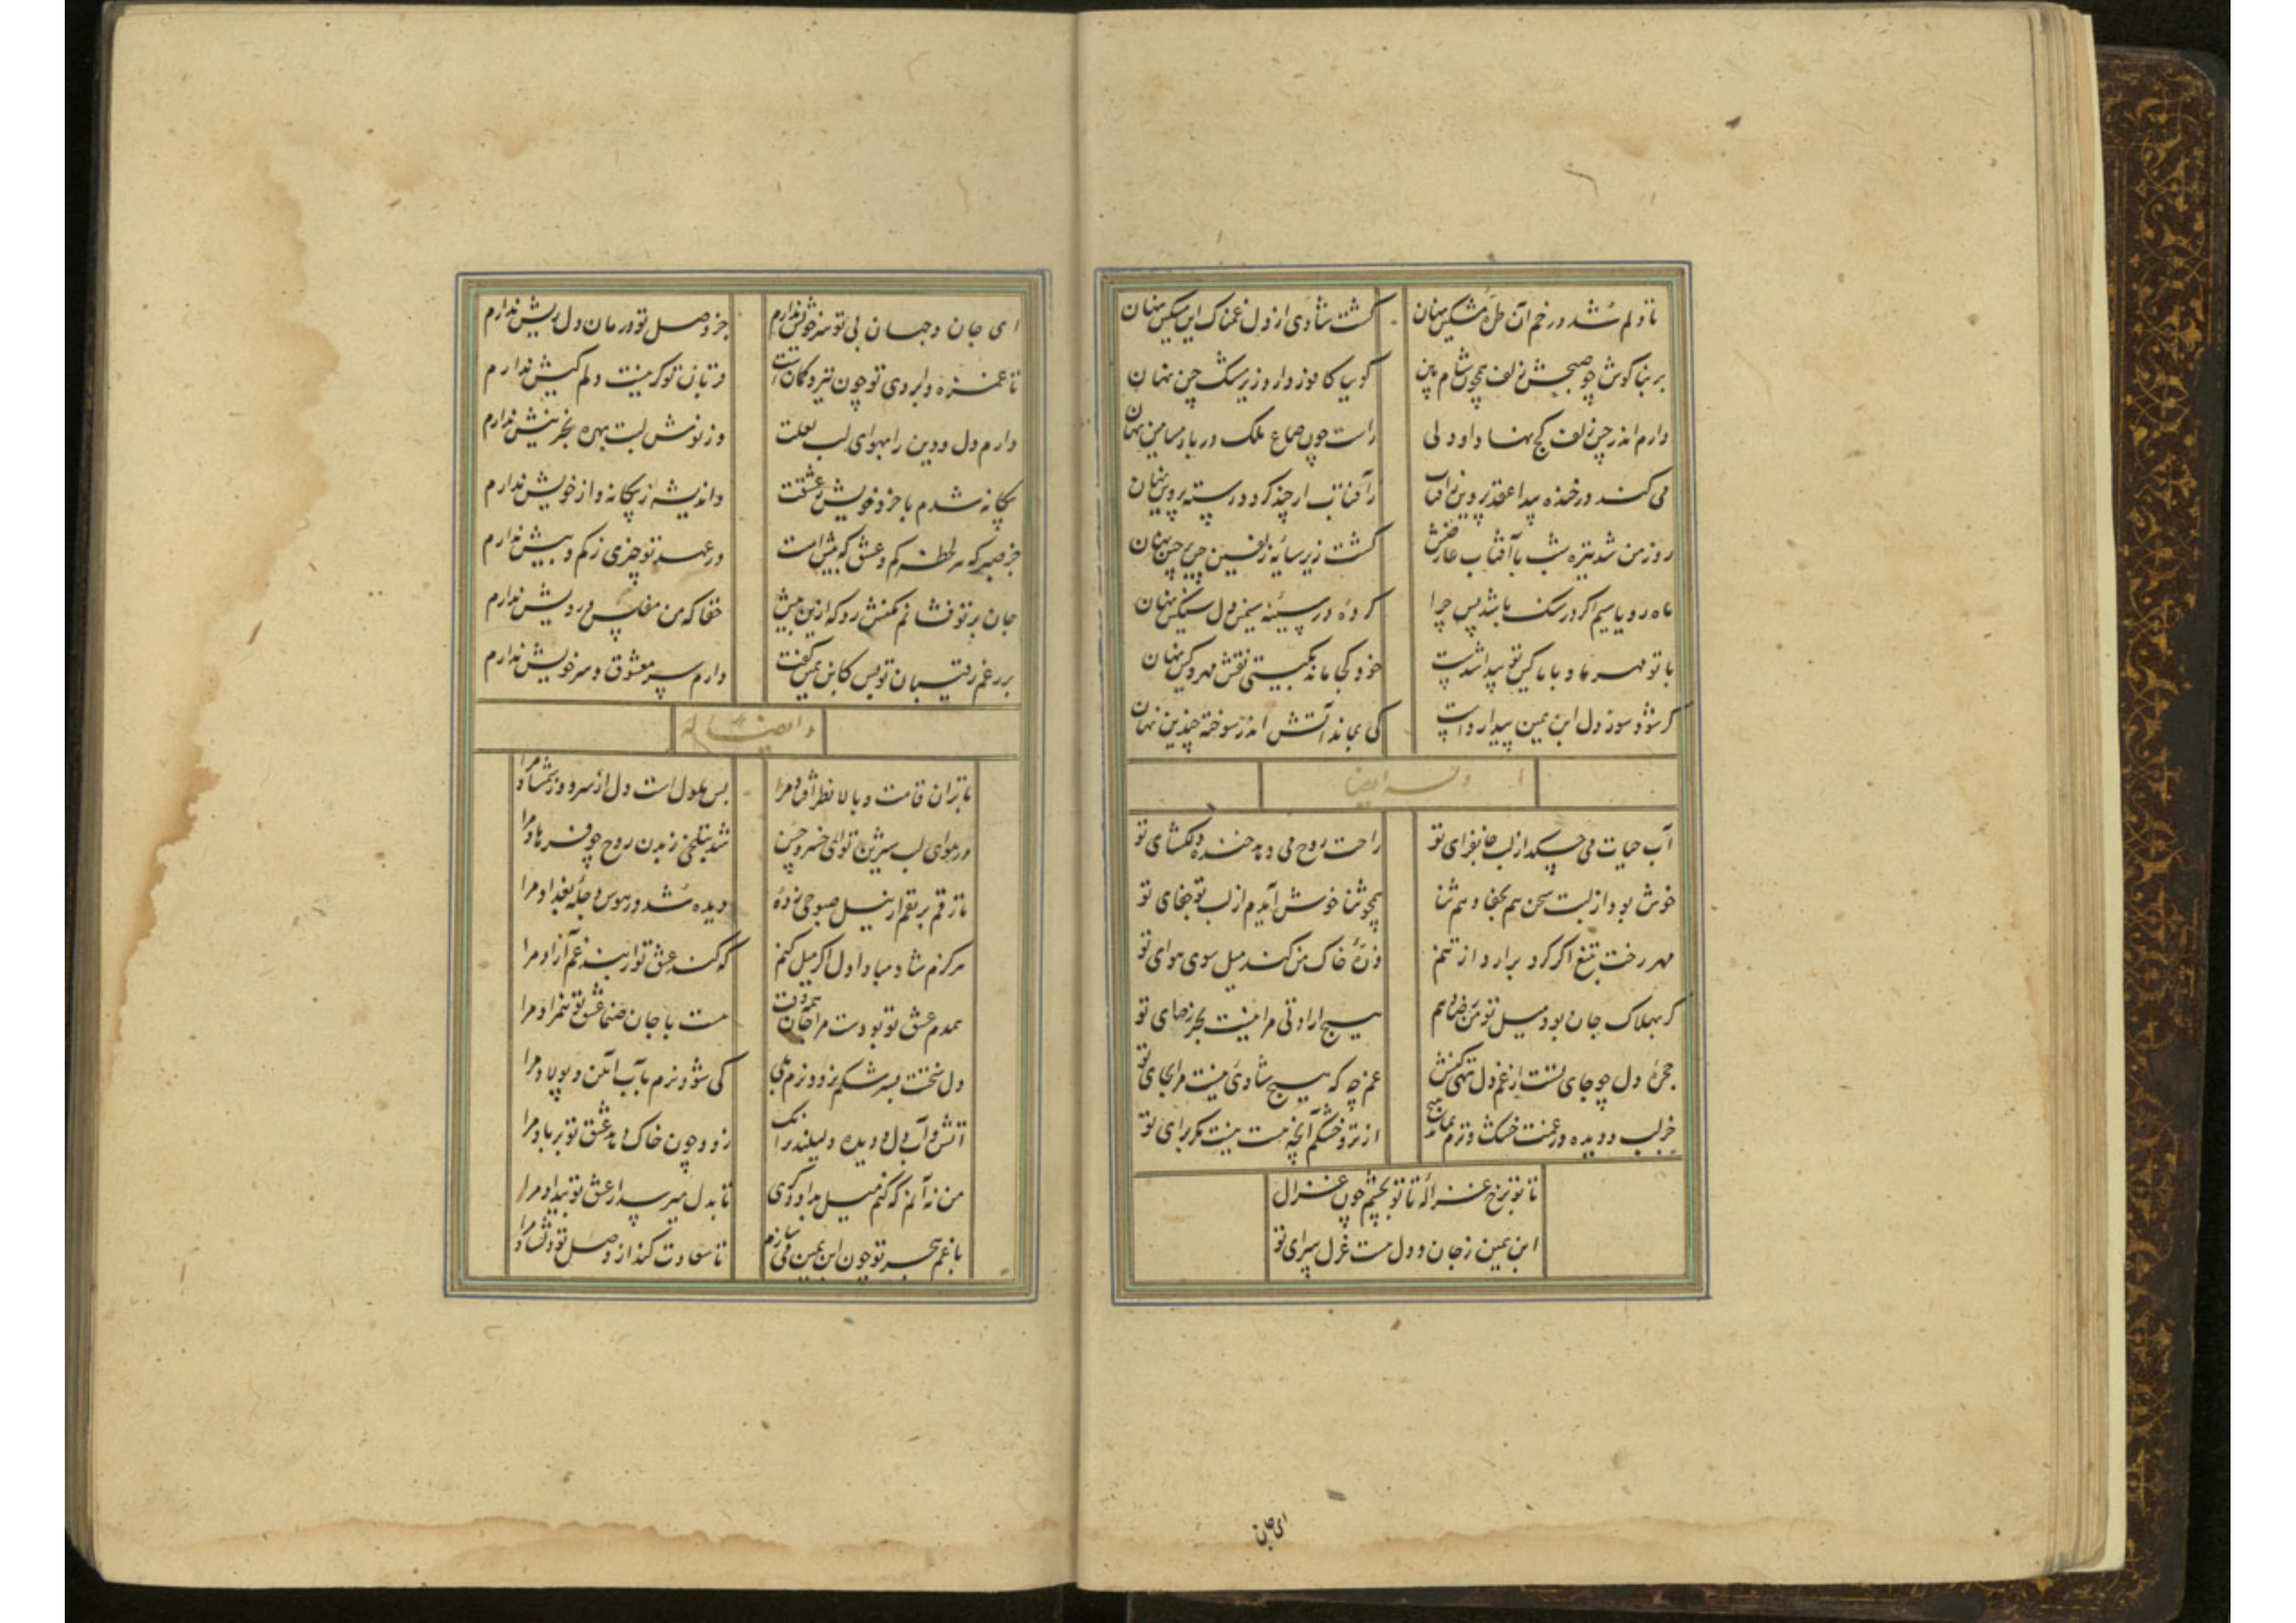 تا دلم شد در خم آن طره مشکین نهان
گشت شادی از دل غمناک این مسکین نهان
بر بناگوش چو صبحش زلف همچون شام بین
گوییا کافور دارد زیر مشک چین نهان
دارم اندر چین زلف کج نهادا و دلی
راست چون صاع ملک در بار یامین نهان
می کند در خنده پیدا عقد پروین ز آفتاب
ز آفتاب ار چند گردد رسته پروین نهان
روز من شد تیره شب تا آفتاب عارضش
گشت زیر سایه زلفین چین بر چین نهان
ماه رویا سیم اگر در سنگ باشد پس چرا
کرده در سینه سیمین دل سنگین نهان
با تو مهر ما و با ما کین تو پیدا شدست
خود کجا ماند بگیتی نقش مهر و کین نهان
گر شود سوز دل ابن یمین پیدا رواست
کی بماند آتش اندر سوخته چندین نهان
وله ایضا
آب حیات می چکد از لب جانفزای تو
راحت روح می دهد خنده دلگشای تو
خوش بود از لبت سخن هم بجفا و هم ثنا
همچو ثنا خوش آیدم از لب تو جفای تو
مهر رخت بتیغ اگر گرد برآرد از تنم
ذره خاک من کند میل سوی هوای تو
گر بهلاک جان بود میل تو من رضا دهم
هیچ ارادتی مرا نیست بجز رضای تو
حجره دل چو جای تست از غم دل تهی کنش
غم چه که هیچ شادی نیست مرا بجای تو
جز لب و دیده در غمت خشک و ترم نماند هیچ
از تر و خشکم آنچه هست نیست مگر برای تو
تا تو برخ غزاله تا تو بچشم چون غزال
ابن یمین ز جان و دل هست غزل سرای تو
ای جان
ای جان و جهان بی تو سر خویش ندارم
جز وصل تو درمان دل ریش ندارم
تا غمزه و ابروی تو چون تیر و کمانست
قربان تو کر نیست دلم کیش ندارم
دارم دل و دین را بهوای لب لعلت
وز نوش لبت بهره بجز نیش ندارم
بیگانه شدم با خرد خویش ز عشقت
واندیشه ز بیگانه و از خویش ندارم
جز صبر که هر لحظه کم و عشق که بیش است
در عهد تو چیزی ز کم و بیش ندارم
جان بر تو فشانم مکنش رد که ازین بیش
حقا که من مفلس درویش ندارم
بر رغم رقیبان تو بس کابن یمین گفت
دارم سر معشوق و سر خویش ندارم
و ایضا له
تا بر آن قامت و بالا نظر افتاد مرا
بس ملول است دل از سرو و ز شمشاد مرا
در هوای لب شیرین تو ای خسرو حسن
شد بتلخی ز بدن روح چو فرهاد مرا
تا رقم بر بقم از نیل صبوحی زده
دیده شد در هوس دجله بغداد مرا
هرگزم شاد مبادا دل اگر میل کنم
که کند عشق تو از بند غم آزاد مرا
همدم عشق تو بودست مرا جان همه وقت
هست با جان صنما عشق تو همزاد مرا
دل سختت بسرشکم نزود نرم بلی
کی شود نرم بآب آهن و پولاد مرا
آتش و آب دل و دیده دلیلند بر آنک
زود چون خاک دهد عشق تو بر باد مرا
من نه آنم که کنم میل بداد دگری
تا بدل میرسد از عشق تو بیداد مرا
با غم هجر تو چون ابن یمین می سازم
تا سعادت کند از وصل تو دلشاد مرا